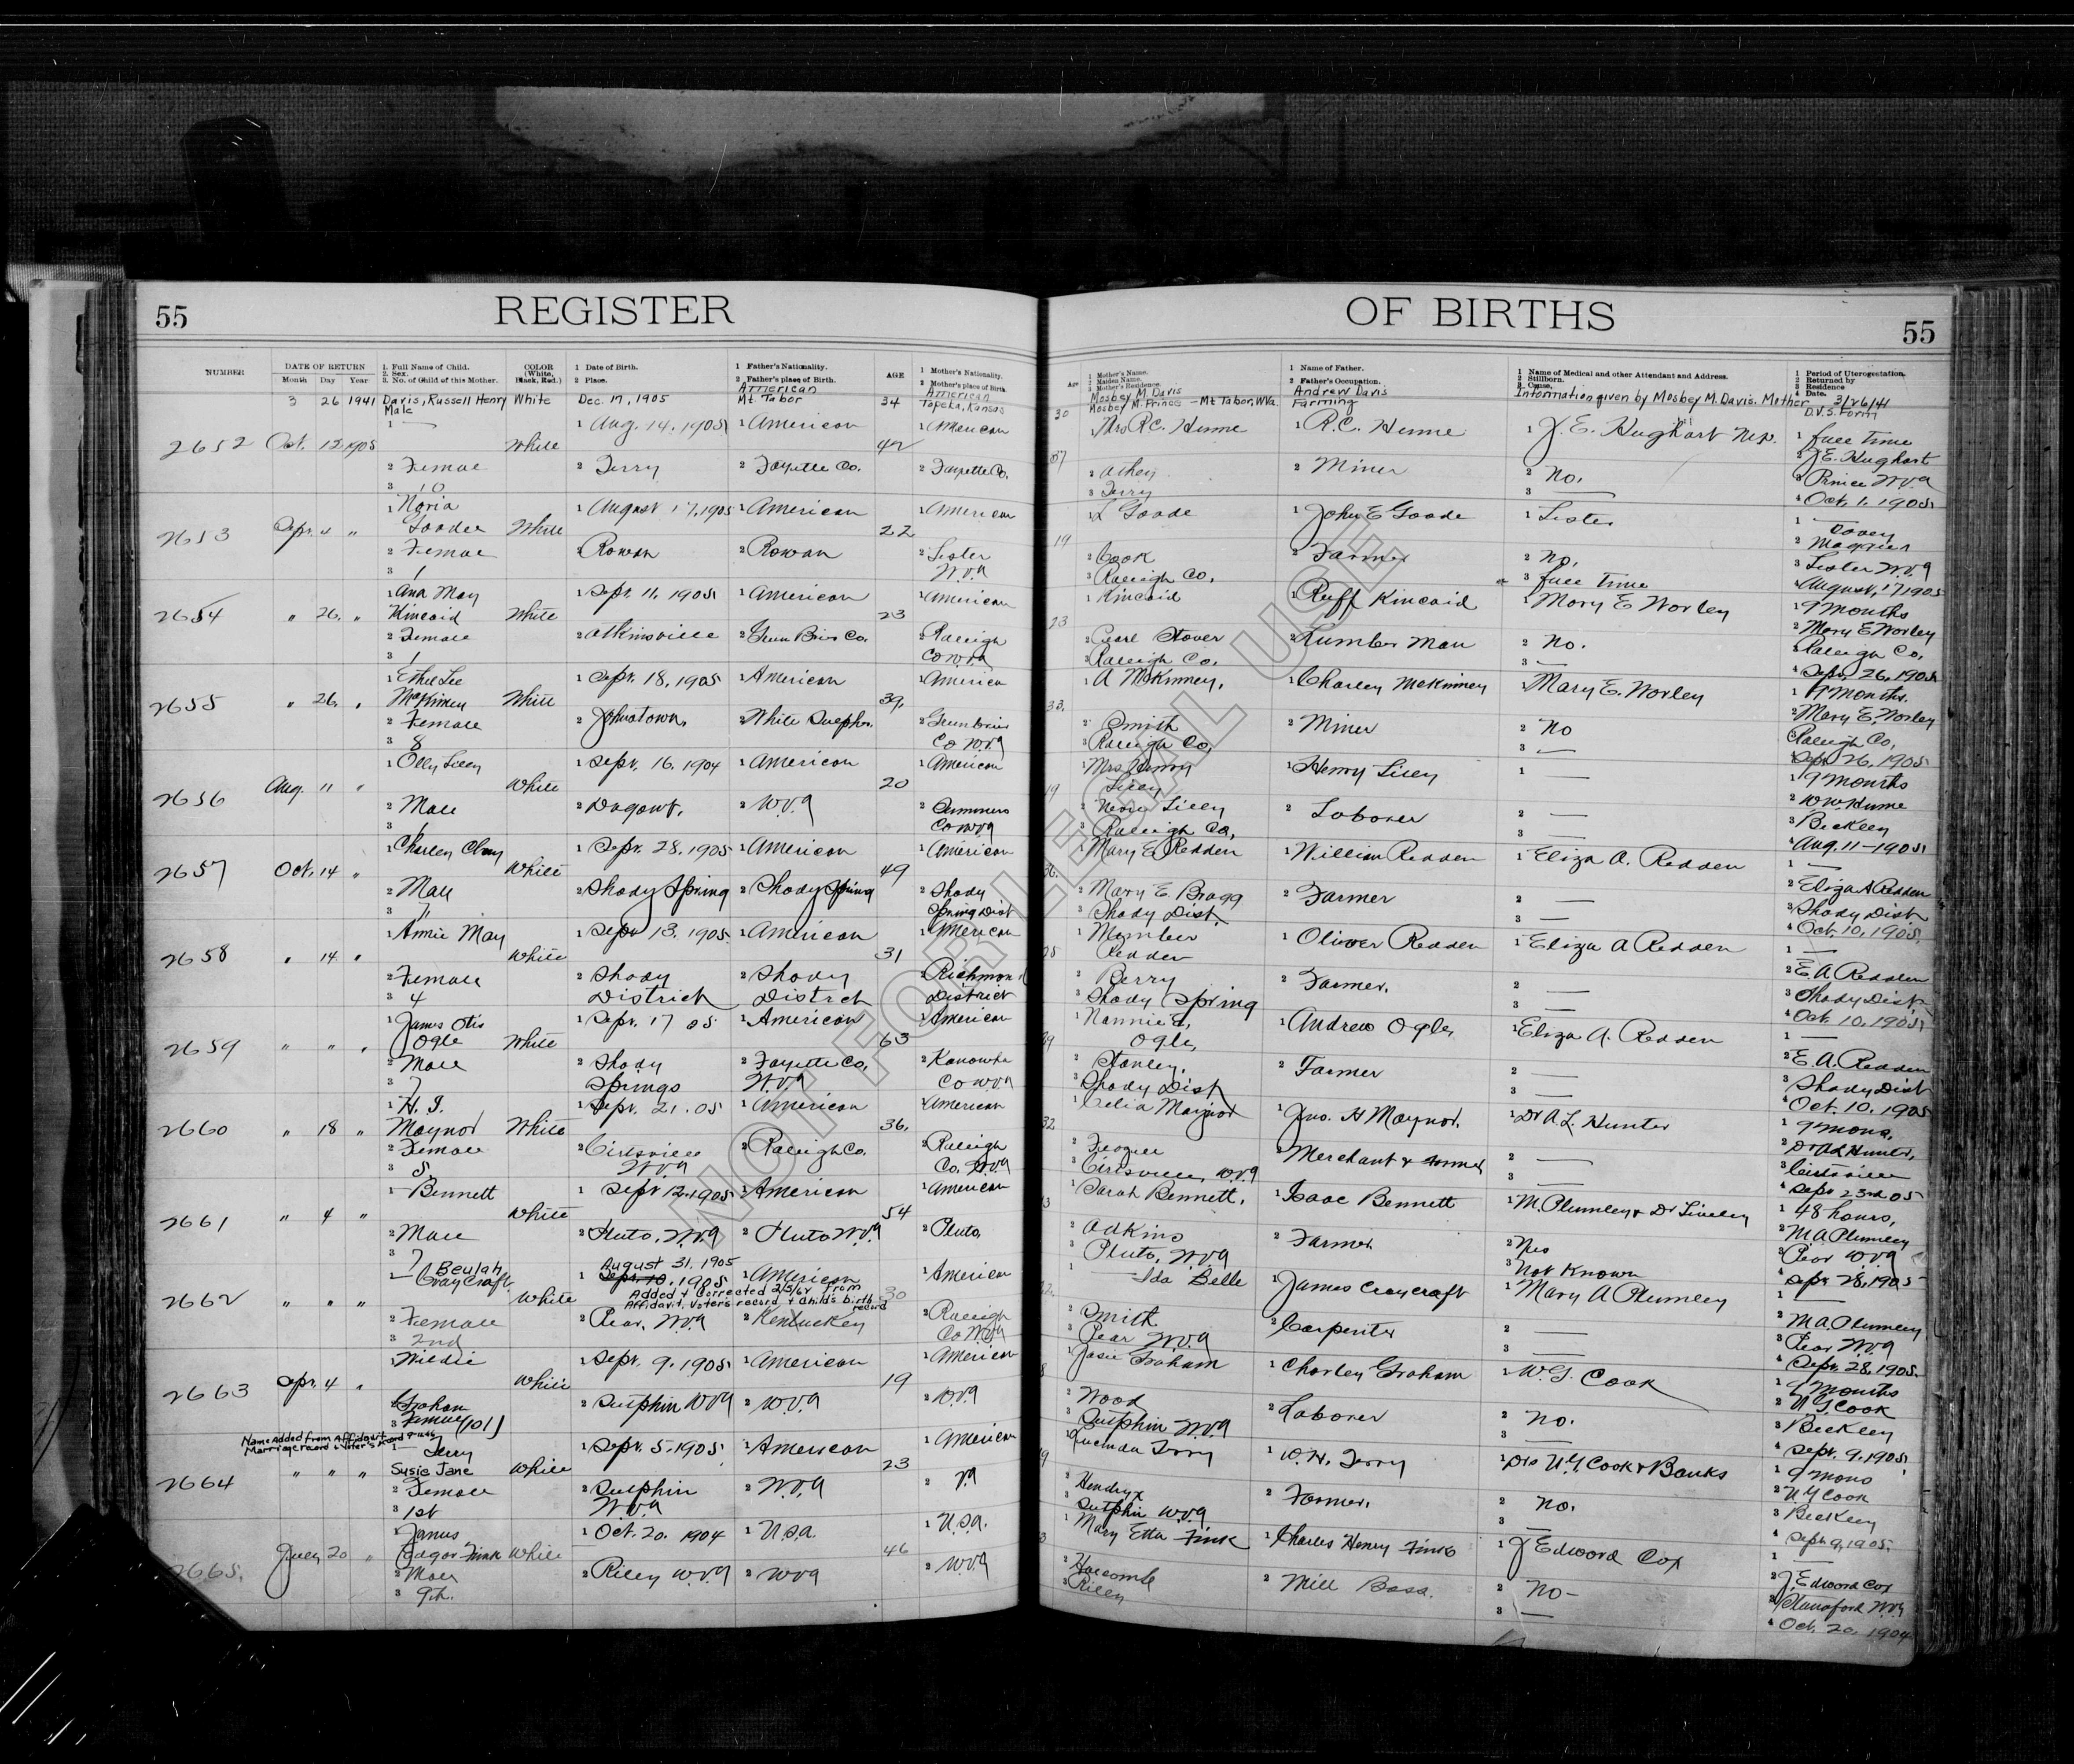 55
REGISTER
OF BIRTHS
55
NUMBER
DATE OF RETURN
Month Day Year
1. Full Name of Child.
2. Sex.
3. No. of Child of this Mother.
COLOR
(White,
Black, Red.)
1 Date of Birth.
2 Place.
1 Father's Nationality.
2 Father's place of Birth.
AGE
1 Mother's Nationality.
2 Mother's place of Birth
Age
1 Mother's Name.
2 Maiden Name.
3 Mother's Residence.
1 Name of Father.
2 Father's Occupation.
1 Name of Medical and other Attendant and Address.
2 Stillborn.
3 Cause.
1 Period of Uterogestation.
2 Returned by
3 Residence
4 Date.
3 26 1941 Davis, Russell Henry White Dec. 17, 1905 American 34 American
Male Mt. Tabor Topeka, Kansas
30 Mosbey M. Davis Andrew Davis Information given by Mosbey M. Davis. Mother 3/26/41
Mosbey M. Prince - Mt Tabor, W.Va. Farming D.V.S. Form
2652 Oct. 12 1905 White 42
1 — 1 Aug. 14. 1905 1 American 1 American
2 Female 2 Terry 2 Fayette Co. 2 Fayette Co.
3 10
37 1 Mrs R.C. Hume 1 R.C. Hume 1 J.E. Hughart M.D. 1 full time
2 Athey 2 Miner 2 No. 2 J.E. Hughart
3 Terry 3 — 3 Prince W.Va
4 Oct. 1. 1905
2653 Sept. 4 " White 22
1 Noria 1 August 17, 1905 1 American 1 American
Goodee
2 Female 2 Rowan 2 Rowan 2 Lester
3 1 W.Va
19 1 Goode 1 John E Goode 1 Lester 1 —
2 Cook 2 Farmer 2 No.
3 Raleigh Co. 3 full time 3 Lester W.Va
4 August, 17 1905
2654 " 26. " White 23
1 Ana May 1 Sept. 11. 1905 1 American 1 American
Kincaid
2 Female 2 Atkinsville 2 Green Brier Co. 2 Raleigh
3 1 Co W.Va
23 1 Kincaid 1 Ruff Kincaid 1 Mary E Worley 1 9 months
2 Pearl Stover 2 Lumber Man 2 No. 2 Mary E Worley
3 Raleigh Co. 3 — 3 Raleigh Co.
4 Sept. 26. 1905
2655 " 26. " White 39.
1 Ethel Lee 1 Sept. 18, 1905 1 American 1 American
McKinney
2 Female 2 Johnstown 2 White Sulphr. 2 Greenbrier
3 8 Co W.Va
33. 1 A McKinney, 1 Charley McKinney 1 Mary E. Worley 1 9 months.
2 Smith 2 Miner 2 No 2 Mary E. Worley
3 Raleigh Co, 3 — Raleigh Co,
Sept 26. 1905
2656 Aug. 11 " White 20
1 Olly Lilly 1 Sept. 16. 1904 1 American 1 American
2 Male 2 2 W.Va 2 Summers
3 1 Co W Va
19 1 Mrs Henry 1 Henry Lilly 1 — 1 9 months
Lilly
2 Lilly 2 Laborer 2 — 2 W.W. Hume
3 Raleigh Co, 3 — 3 Beckley
4 Aug. 11-1905
2657 Oct. 14 " White 49
1 Charley Clay 1 Sept. 28. 1905 1 American 1 American
2 Male 2 Shady Spring 2 Shady Spring 2 Shady
3 7 Spring Dist
36. 1 Mary E Redden 1 William Redden 1 Eliza A. Redden 1 —
2 Mary E. Bragg 2 Farmer 2 — 2 Eliza A Redden
3 Shady Dist. 3 — 3 Shady Dist
4 Oct. 10. 1905.
2658 " 14 " White 31
1 Annie May 1 Sept 13. 1905. 1 American 1 American
2 Female 2 Shady 2 Shady 2 Richmond
3 4 District District District
1 Oliver Redden 1 Eliza A Redden 1 —
Redden
2 Berry 2 Farmer. 2 — 2 E. A. Redden
3 Shady Spring 3 — 3 Shady Dist.
4 Oct. 10, 1905
2659 " " " White 63
1 James Otis 1 Sept. 17 05 1 American 1 American
Ogle
2 Male 2 Shady 2 Fayette Co, 2 Kanawha
3 7 Springs W.Va Co W Va
1 Nannie E, 1 Andrew Ogle, 1 Eliza A. Redden 1 —
Ogle,
2 Stanley, 2 Farmer 2 — 2 E. A. Redden
3 Shady Dist 3 — 3 Shady Dist
4 Oct. 10. 1905
2660 " 18 " White 36.
1 H. I. 1 Sept. 21. 05 1 American 1 American
Maynor
2 Female 2 Cirtsville 2 Raleigh Co. 2 Raleigh
3 5 W.Va Co. W.Va
32 1 Celia Maynor 1 Jno. H Maynor. 1 Dr A. L. Hunter 1 9 mons.
2 2 Merchant & Farmer 2 — 2 Dr A L Hunter,
3 Cirtsville, W.Va 3 — 3 Cirtsville
4 Sept 23rd 05
2661 " 4 " White 54
1 — Bennett 1 Sept 12. 1905 1 American 1 American
2 Male 2 Pluto, W.Va 2 Pluto W.Va 2 Pluto,
3 7
1 Sarah Bennett. 1 Isaac Bennett 1 M. Plumley & Dr Lively 1 48 hours,
2 Adkins 2 Farmer 2 Yes 2 M.A. Plumley
3 Pluto, W.Va 3 Not Known 3 Pear W.Va
4 Sept. 28, 1905
2662 " " " White 30
1 — Beulah August 31. 1905
Craycraft 1 Sept. 10. 1905 1 American 1 American
Added & Corrected 2/5/64 from
Affidavit, Voters record & Child's birth record
2 Female 2 Pear, W.Va 2 Kentuckey 2 Raleigh
3 2nd Co W.Va
1 — Ida Belle 1 James Craycraft 1 Mary A Plumley 1 —
2 Smith 2 Carpenter 2 — 2 M A. Plumley
3 Pear W.Va 3 — 3 Pear W.Va
4 Sept. 28, 1905.
2663 Sept. 4 " White 19
1 Wildie 1 Sept. 9. 1905 1 American 1 American
Graham 2 Sutphin W Va 2 W.Va 2 W.Va
3 Female (10)
1 Josie Graham 1 Charley Graham 1 W. G. Cook 1 9 months
2 Wood 2 Laborer 2 No. 2 U G Cook
3 Sutphin W.Va 3 — 3 Beckley
4 Sept. 9. 1905
Name Added from Affidavit
Marriage record & Voter's record
2664 " " " White 23
1 — Terry 1 Sept. 5. 1905 1 American 1 American
Susie Jane
2 Female 2 Sutphin 2 W.Va 2 Va
3 1st W.Va
1 Lucinda Terry 1 W. H. Terry 1 Drs U.G. Cook & Banks 1 9 mons
2 Hendryx 2 Farmer. 2 No. 2 U G Cook
3 Sutphin W.Va 3 — 3 Beckley
4 Sept. 9, 1905.
2665. July 20 " White 46
1 James 1 Oct. 20. 1904 1 U.S.A. 1 U.S.A.
Edgar Fink
2 Male 2 Riley W.Va 2 W Va 2 W.Va
3 9th.
1 Mary Etta Fink 1 Charles Henry Fink 1 J Edward Cox 1 —
2 Holcomb 2 Mill Boss. 2 No - 2 J. Edward Cox
3 Riley 3 — 3 Stanaford W.Va
4 Oct. 20. 1904
NOT FOR LEGAL USE